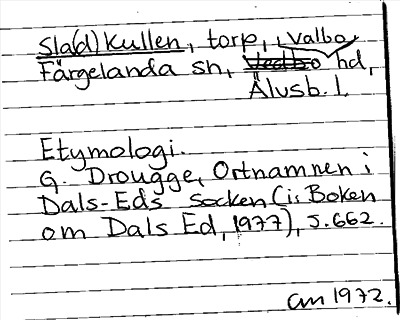 Sla(d)kullen, torp, Valbo
Färgelanda sn, Vedbo hd,
Älvsb. l.
Etymologi.
G. Drougge, Ortnamnen i
Dals-Eds socken (i: Boken
om Dals Ed, 1977), s. 662.
1972.